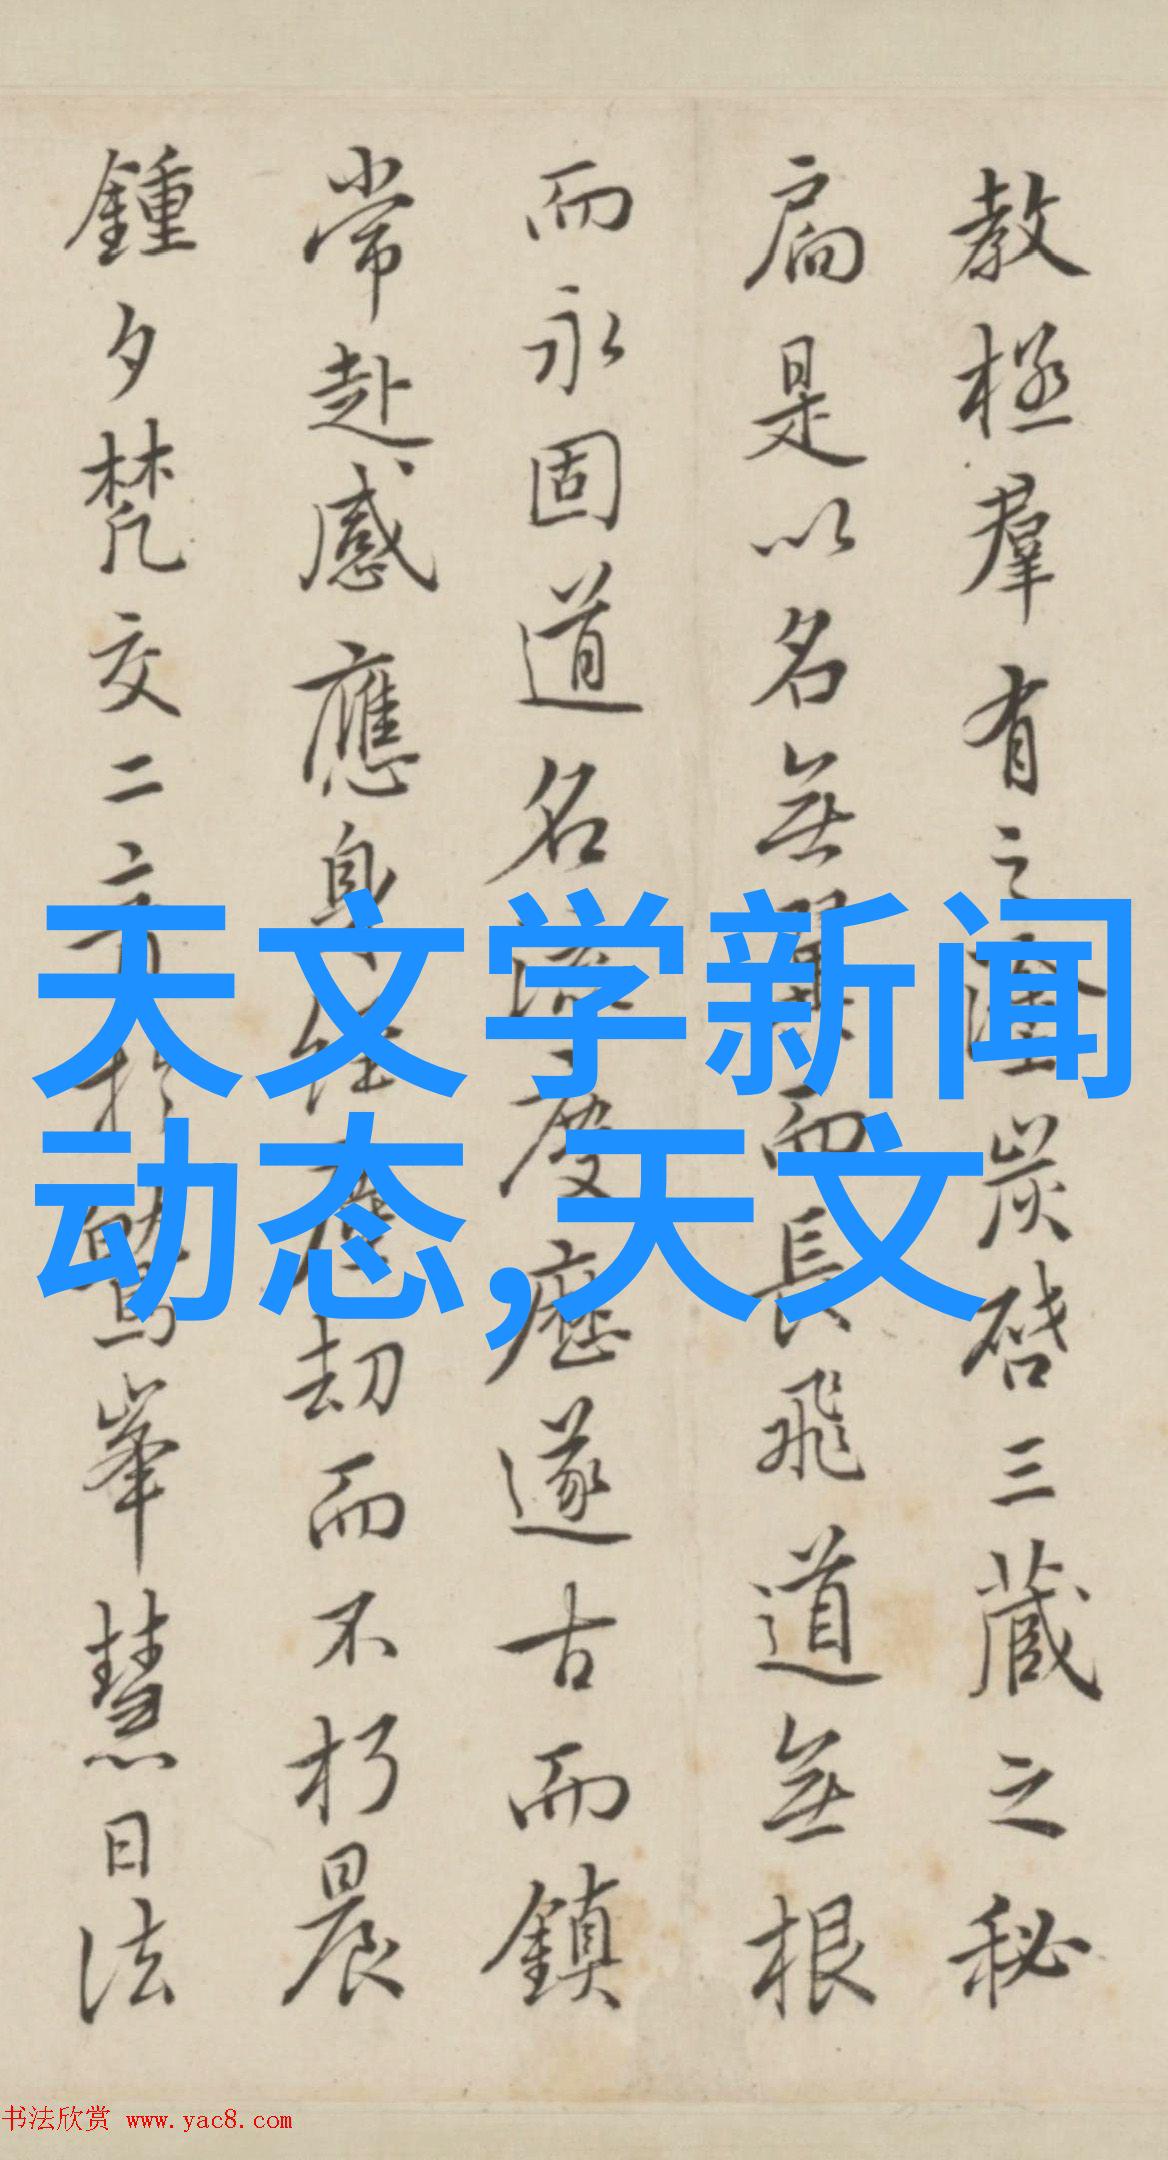 教極羣有之塗炭啓三藏之秘
扃是以名無翼而長飛道無根
而永固道名流慶歷遂古而鎮
常赴感應身經塵劫而不朽晨
鍾夕梵交二音於鷲峯慧日法
天文学新闻
动态,天文
书法欣赏 www.yac8.com